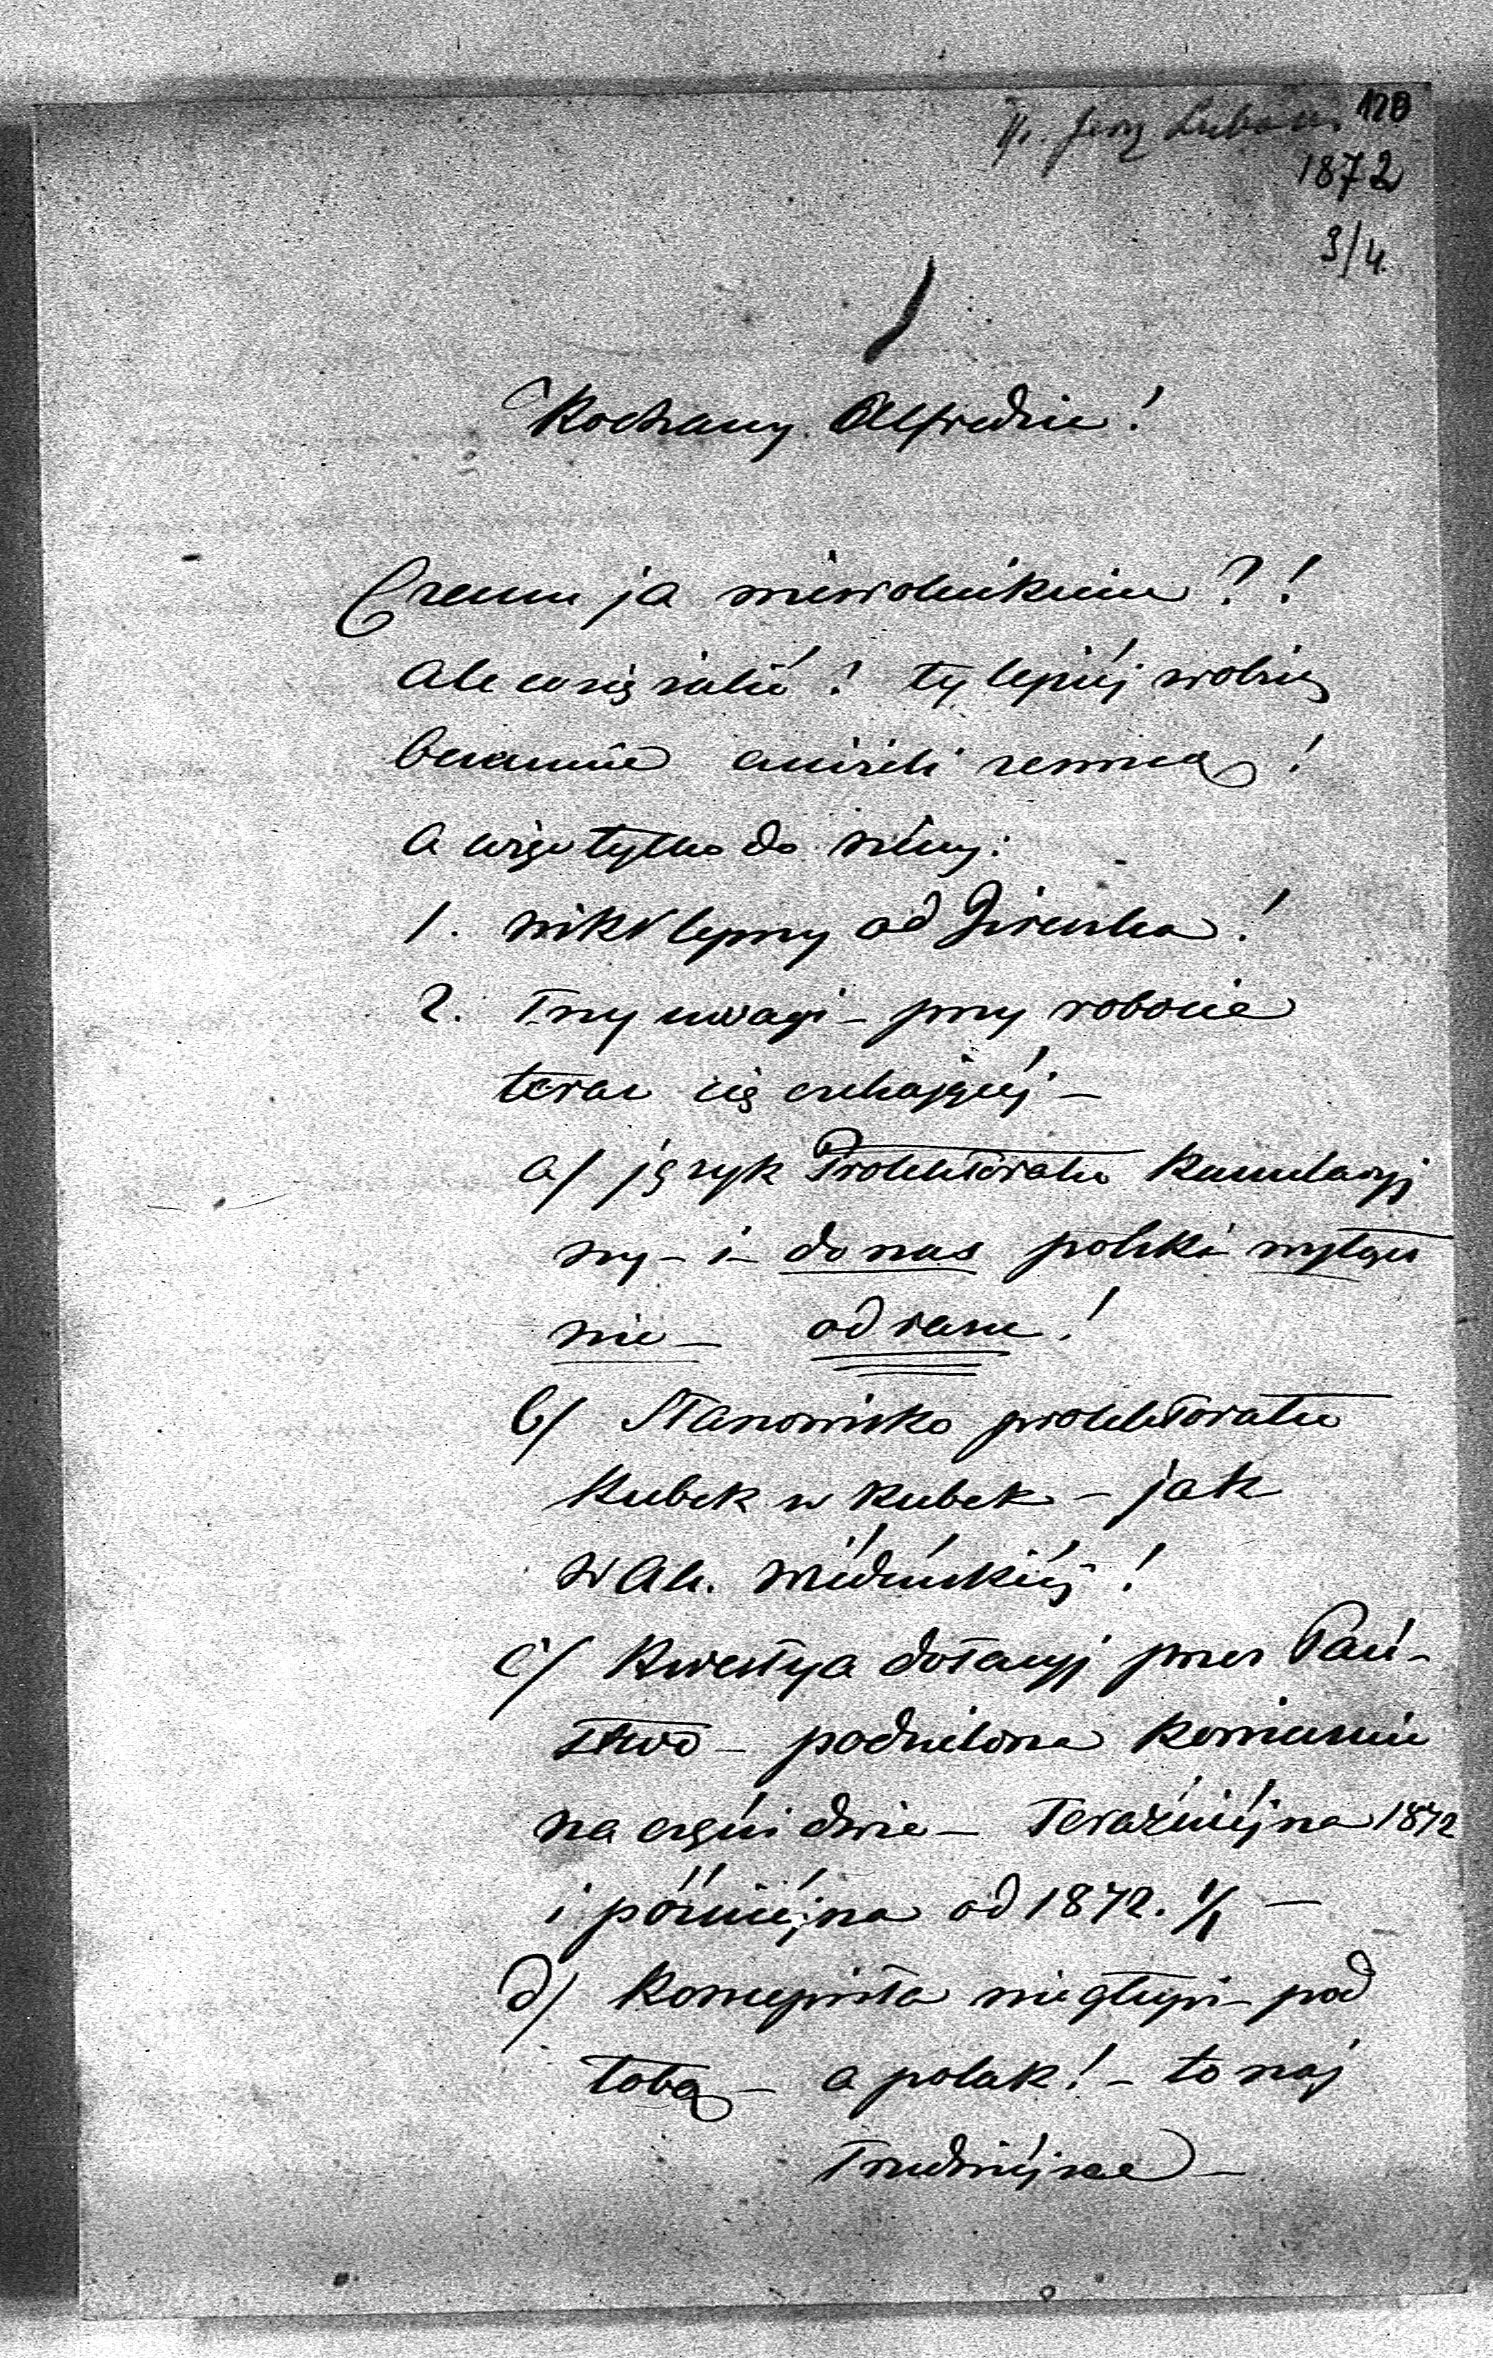 120
Jerzy Lubom.
1872
3/4.
Kochany Alfredzie!
Czemu ja niewolnikiem?!
Ale co się żalić! ty lepiéj wolną
bezemnie aniżeli zemną!
A więc tylko do rzéczy:
1. nikt lepszy od Zirenka!
2. Trzy uwagi – przy robocie
teraz cię czekającéj –
a/ język Protektoratu Kumulacyj
ny – i – do nas polski wyłącz
nie – od razu!
b/ Stanowisko protektoratu
Kubek w kubek – jak
w Ak. wiédeńskiéj!
c/ Kwestya dotacyj przez Pań-
stwo – podzielona koniecznie
na części dwie – teraźniéjsza 1872
i późniéjsza od 1872. 1/1 –
d/ Koncepista nie głupi – pod
tobą – a polak! – to naj
trudniéjsze –